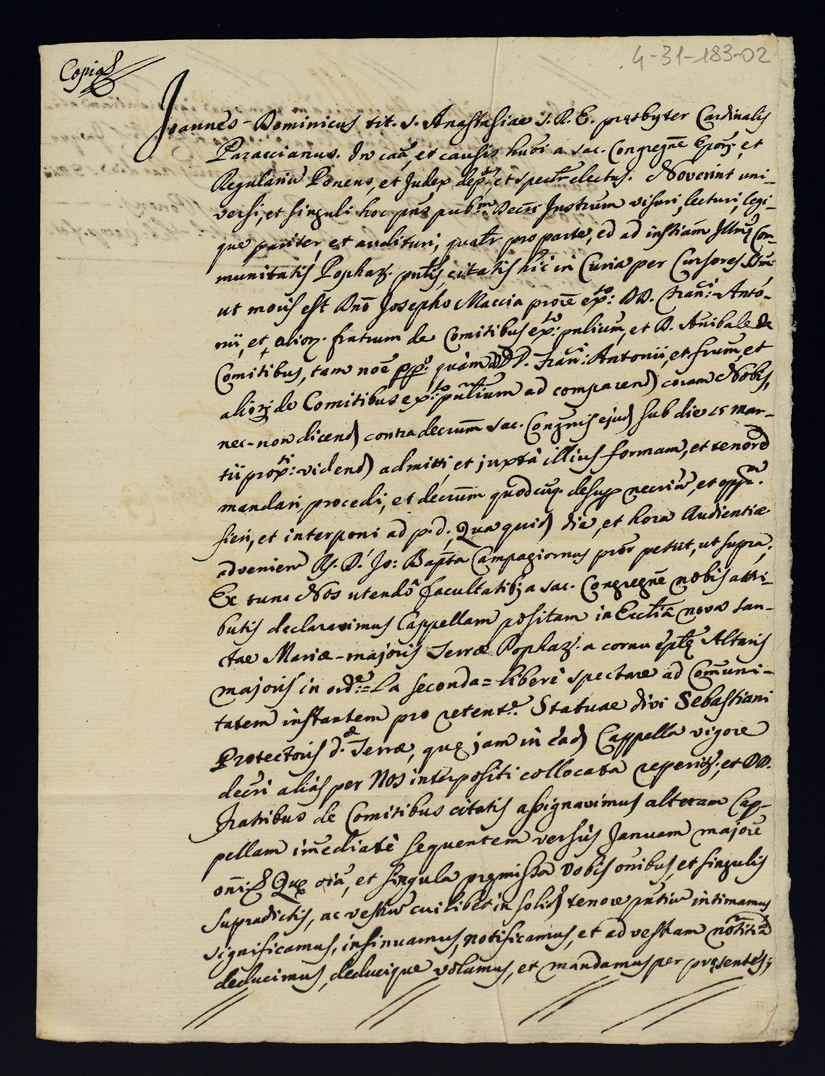 4-31-183-02
Copia
Joannes-Dominicus tit. S. Anastasiae S.R.E. praesbyter Cardinalis
Paraccianus. In caã, et causis huõi a sac. Congregñe Eporz, et
Regulariũ Ponens, et Judex depũs, et specũr electus. Noverint uni-
versi, et singuli hoc pñs pubm Decri Instrum visuri, lecturi, legi-
que pariter, et audituri, qualr pro parte, ed ad instiam Illmę Com-
munitatis Pophaz. pñlis, citatis hic in Curia per Cursores Dñi
ut moris est Dnõ Josepho Maccia prorẽ exto: DD. Franci-Antó-
nii, et alior. fratrum de Comitibus exto: pñlium, et D. Anibale de
Comitibus, tam noẽ ppo quàm DD. Franci: Antonii, et frum, et
alior; de Comitibus exto: pñlrium ad comparend coram Nobis,
nec-non dicend contra decrum sac. Congñis ejusd sub die 15 mar-
tii proxi: vidend admitti, et juxtà illius formam, et tenorẽ
mandari, procedi, et decrum quodcũq desup necriũ, et oppm.
fieri, et interponi ad p.d. Qua quid die, et hora Audientiae
adveniens Rs. D. Jo: Baptã Campagiornus prõr petiit, ut supra,
Ex tunc Nos utendo facultatibz a sac. Congregñe nobis attri-
butis declaravimus Cappellam positam in Ecclia nova San-
ctae Mariae-majoris Terrae Pophaz. a cornu eplae Altaris
majoris in ordẽ:= La seconda= liberè spectare ad Comuni-
tatem instantem pro retentẽ. Statuae divi Sebastiani
Protectoris d.ae Terrae, quę jam in ead Cappella vigore
decri aliàs per Nos interpositi collocata reperitr; et DD.
Fratribus de Comitibus citatis assignavimus alteram Cap-
pellam imediatè sequentem versùs Januam majorẽ
Quę oiã, et singula pręmissa vobis omibus, et singulis
supradictis, ac vestrũ cuilibet in solid tenore pñtiũ intimamus
significamus, insinuamus, notificamus, et ad vestram notitiã
deducimus, deducique volumus, et mandamus per pręsentes;